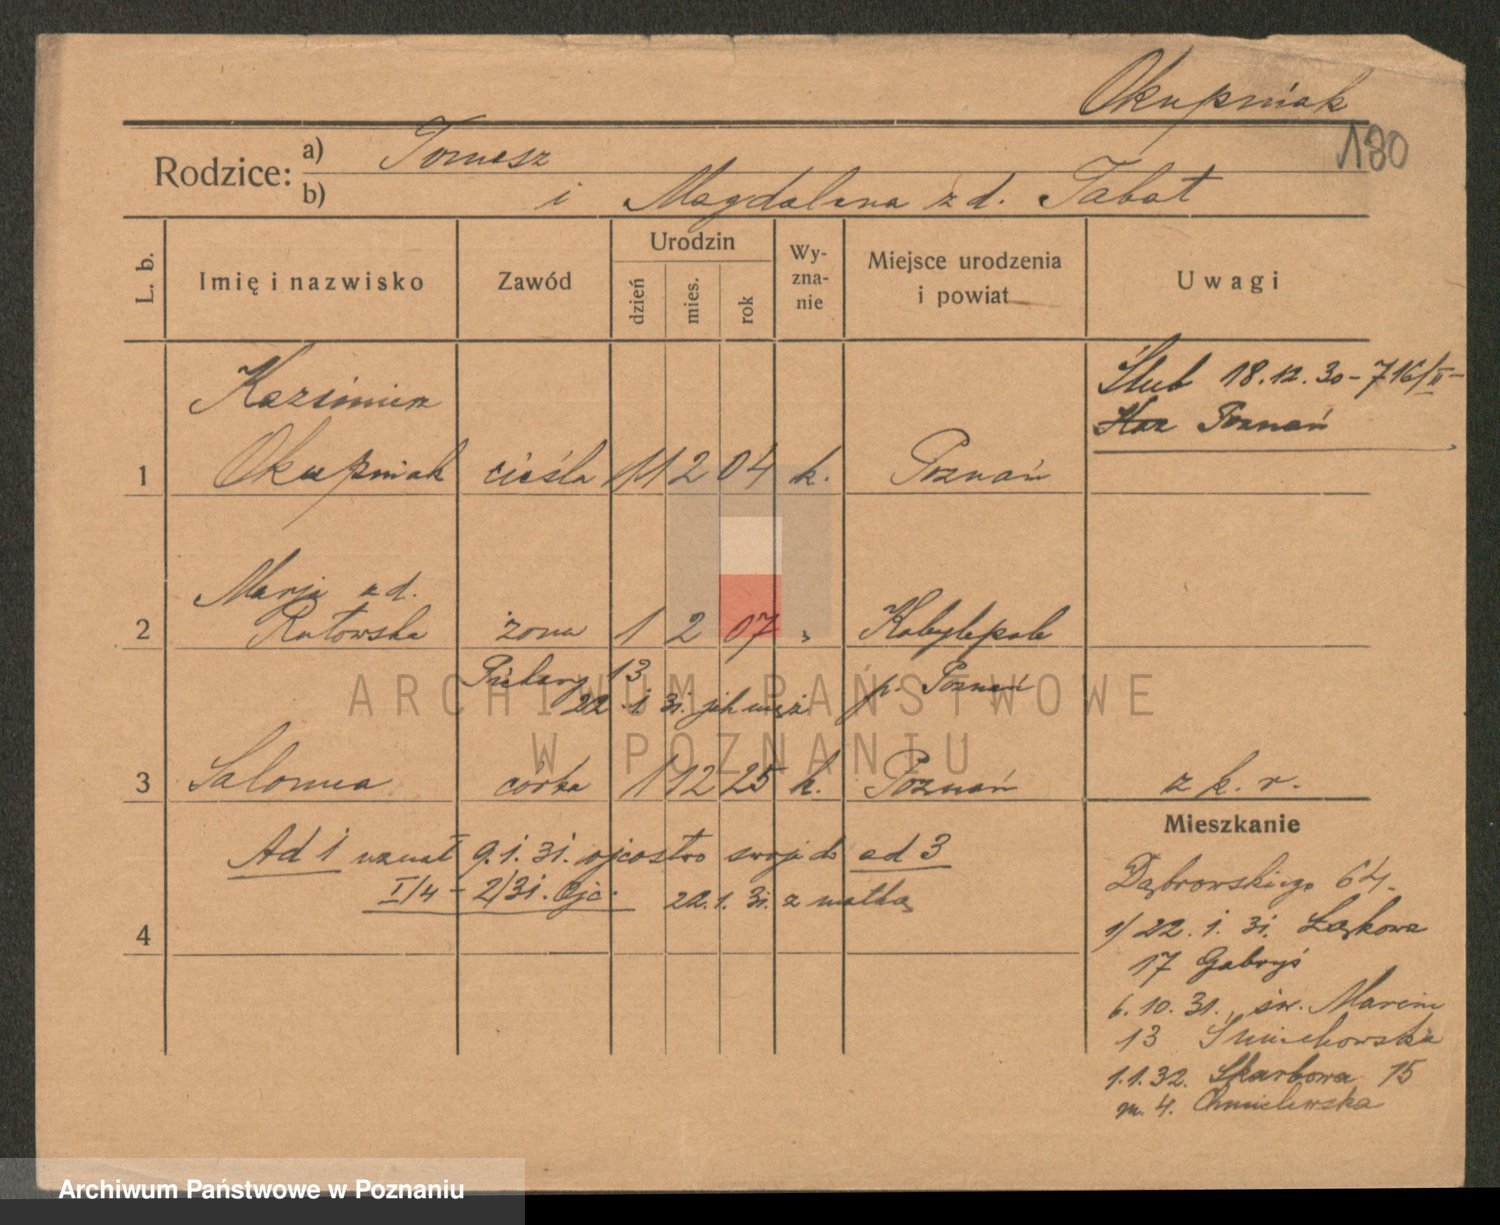 Okupniak
180
Rodzice:
a) Tomasz
b) i Magdalena z d. Tabat
L. b.
Imię i nazwisko
Zawód
Urodzin
dzień
mies.
rok
Wy-
zna-
nie
Miejsce urodzenia
i powiat
Uwagi
Kazimierz
Ślub 18.12.30 - 716/II -
Poznań
1 Okupniak cieśla 11 2 04 k. Poznań
Marja z d.
2 Ratowska żona 1 2 07 " Kobylepole
Piekary 13 p. Poznań
22.1.31. jak mąż
3 Salomea córka 1 12 25 k. Poznań z k. r.
Ad 1 uznał 9.1.31. ojcostwo swoje do ad 3
I/4 - 2/31. Ojc. 22.1.31. z matką
4
Mieszkanie
Dąbrowskiego 64.
1/ 22.1.31. Łąkowa
17 Gabryś
6.10.31. św. Marcin
13
1.1.32. Skarbowa 15
m. 4. Chmielewska
ARCHIWUM PAŃSTWOWE
W POZNANIU
Archiwum Państwowe w Poznaniu